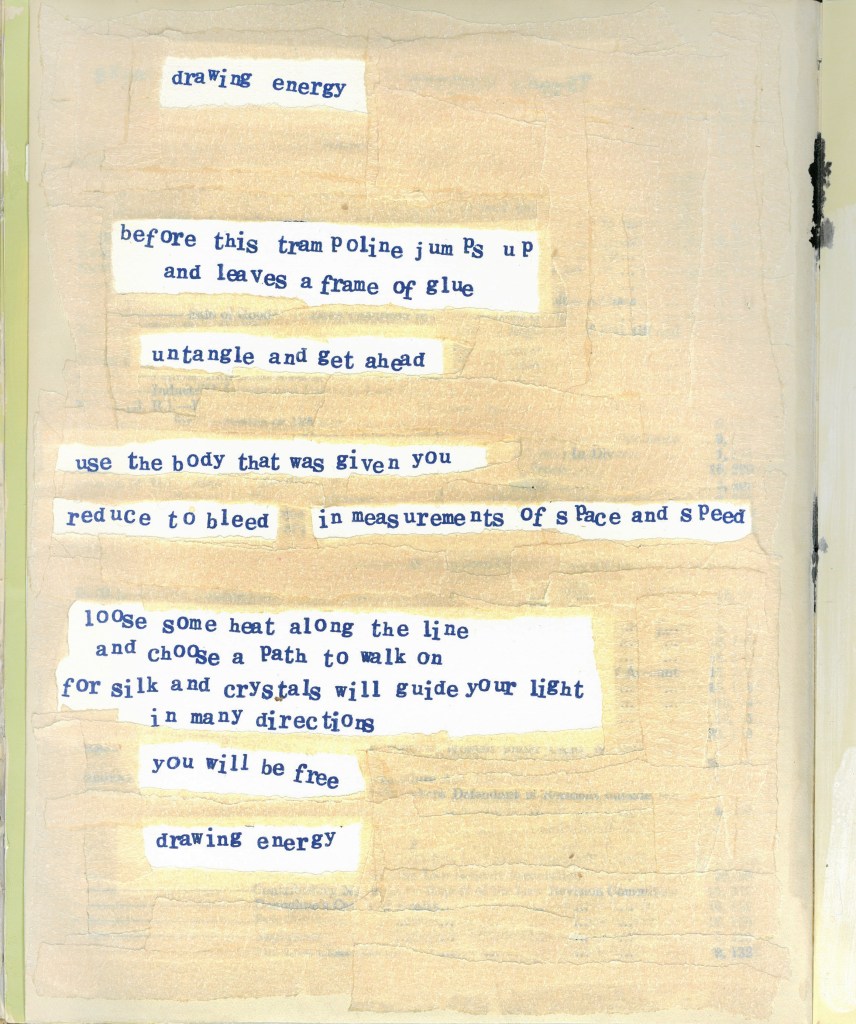 drawing energy
before this trampoline jumps up
and leaves a frame of glue
untangle and get ahead
use the body that was given you
reduce to bleed in measurements of space and speed
loose some heat along the line
and choose a path to walk on
for silk and crystals will guide your light
in many directions
you will be free
drawing energy